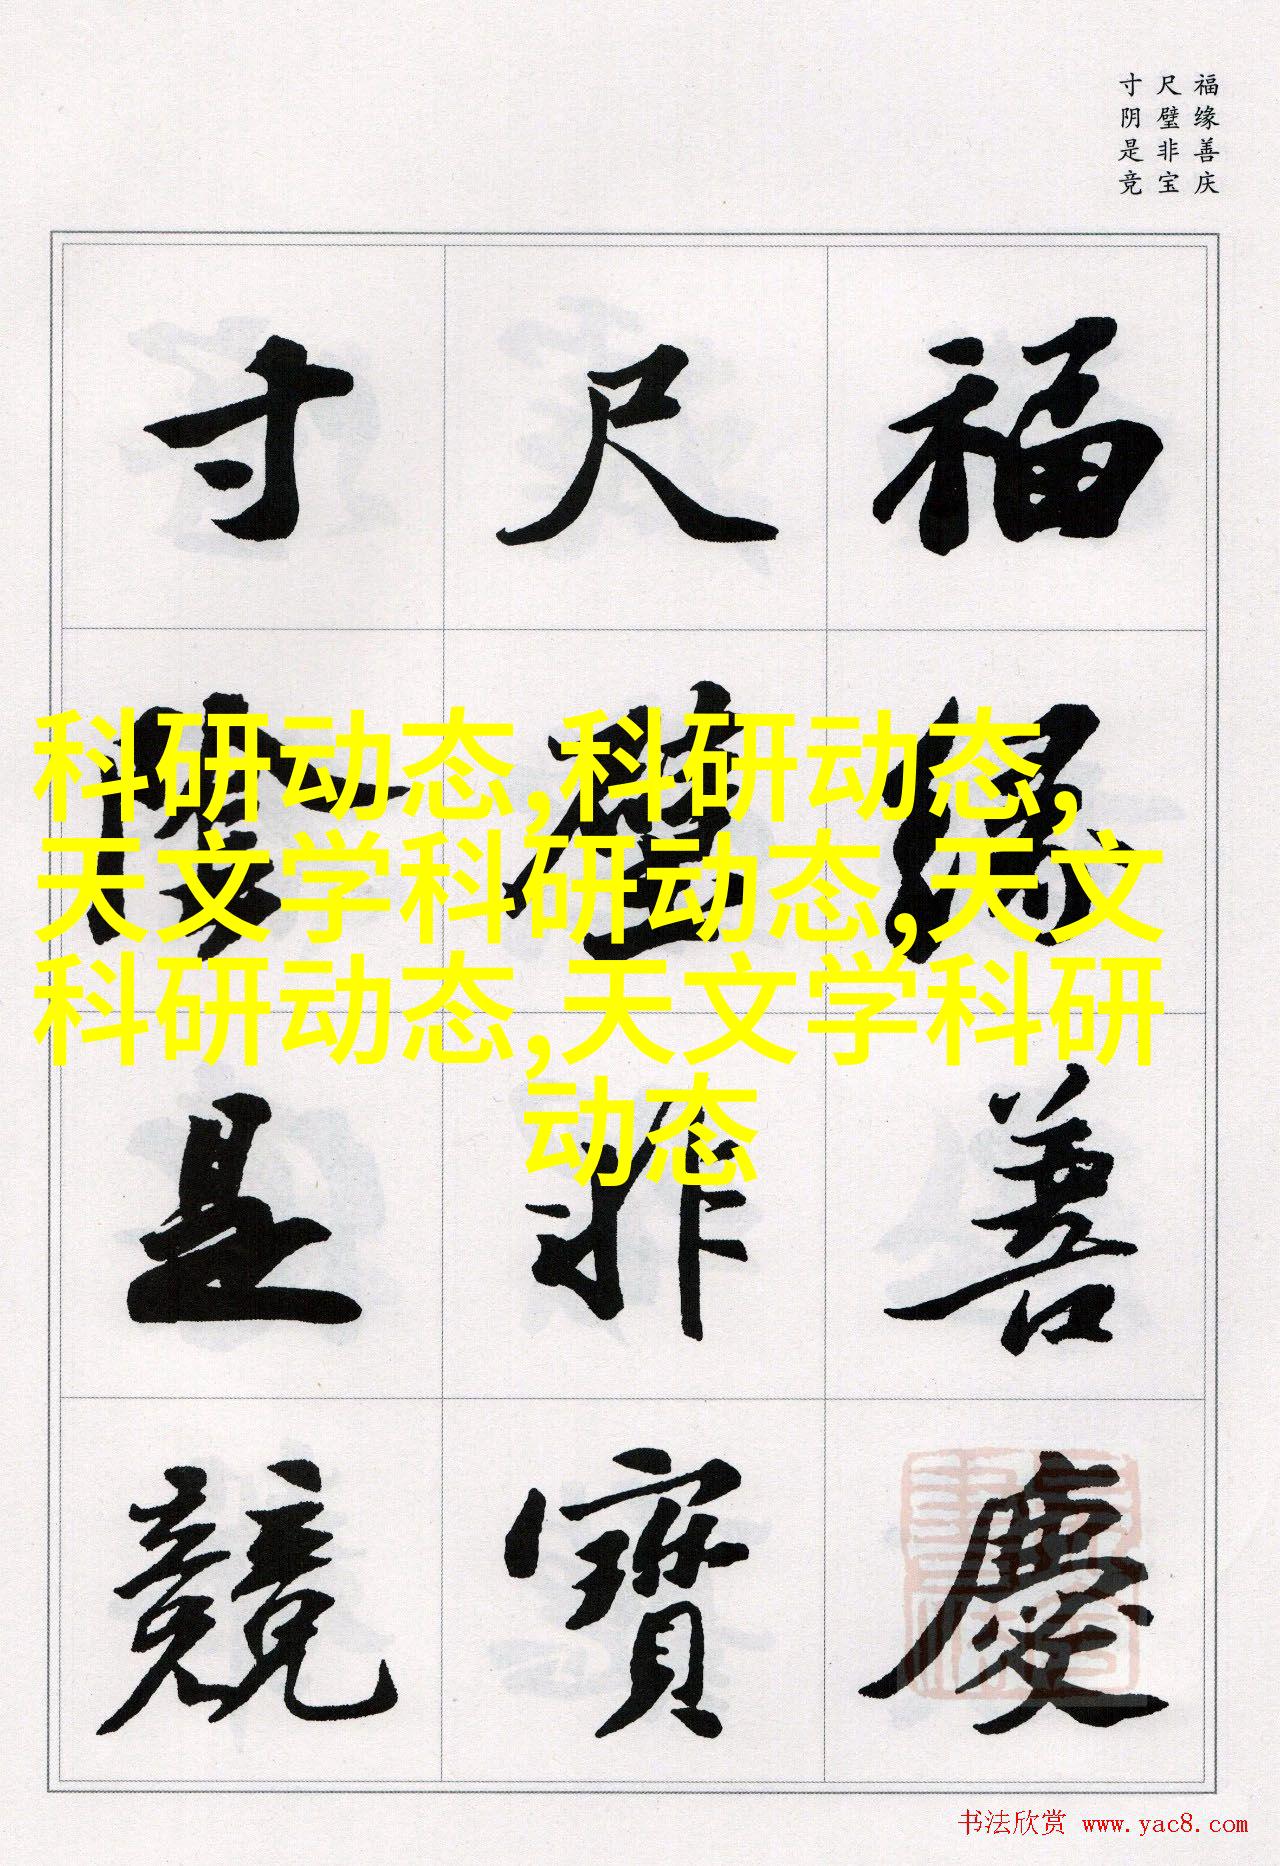 福缘善庆
尺璧非宝
寸阴是竞
福緣善慶
尺璧非寶
寸陰是競
科研动态,科研动态,
天文学科研动态,天文
科研动态,天文学科研
动态
书法欣赏 www.yac8.com